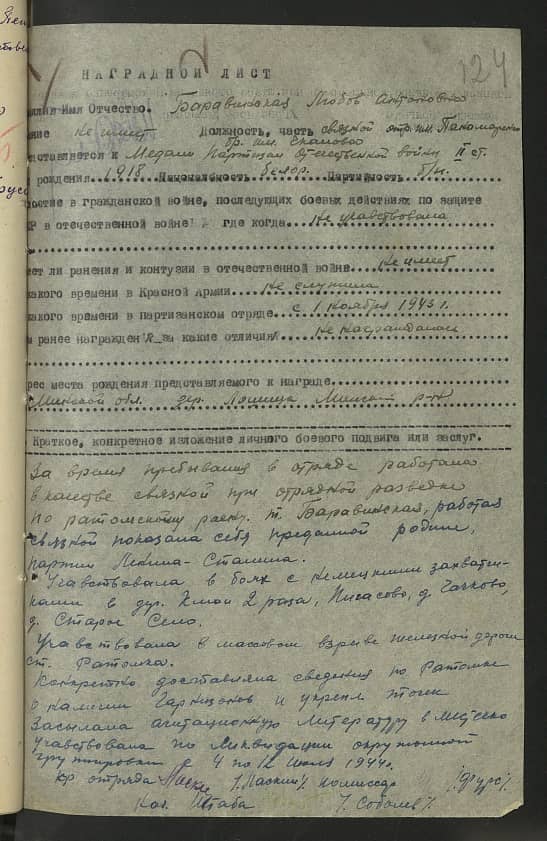 124
НАГРАДНОЙ ЛИСТ
милия Имя Отчество. Баравинская Любовь Антоновна
ание не имеет Должность, часть связной отр. им. Пономаренко
бр. им.
дставляется к Медали Партизан Отечественной войны II ст.
рождения 1918 Национальность белор. Партийность б/п.
стие в гражданской войне, последующих боевых действиях по защите
Р в отечественной войне где когда не учавствовала
ет ли ранения и контузии в отечественной войне не имеет
какого времени в Красной Армии не служила
какого времени в партизанском отряде с 1 ноября 1943 г.
м ранее награжден за какие отличия не награждалась
рес места рождения представляемого к награде
Минской обл. дер. Минский р-н
Краткое, конкретное изложение личного боевого подвига или заслуг.
За время пребывания в отряде работала
в качестве связной при отрядной разведке
по ратомскому т. Баравинская, работая
связной показала себя преданной родине,
партии Ленина-Сталина.
Учавствовала в боях с немецкими захватчи-
ками в дер. 2 раза, д.
д. Старое Село.
Учавствовала в массовом взрыве железной дороги
ст. Ратомка.
Конкретно доставляла сведения по Ратомке
о наличии гарнизонов и укрепл точек
Засылала агитационную литературу в местечко
Учавствовала по ликвидации окруженной
группировки с 4 по 12 июля 1944 г.
Кр отряда комиссар
Нач. Штаба / Соболев /